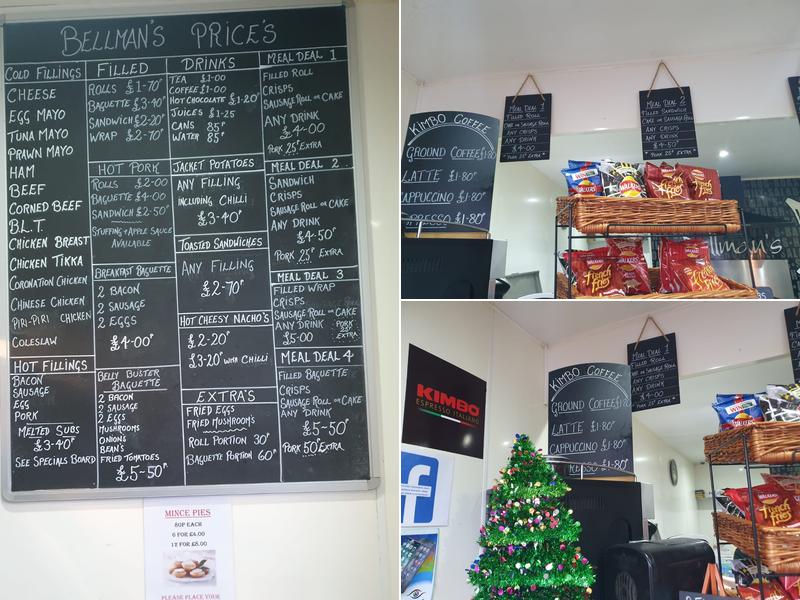 BELLMAN'S PRICE'S
COLD FILLINGS
CHEESE
EGG MAYO
TUNA MAYO
PRAWN MAYO
HAM
BEEF
CORNED BEEF
B.L.T
CHICKEN BREAST
CHICKEN TIKKA
CORONATION CHICKEN
CHINESE CHICKEN
PIRI-PIRI CHICKEN
COLESLAW
HOT FILLINGS
BACON
SAUSAGE
EGG
PORK
MELTED SUBS
£3-40P
SEE SPECIALS BOARD
FILLED
ROLLS £1-70P
BAGUETTE £3-40P
SANDWICH £2-20P
WRAP £2-70P
HOT PORK
ROLLS £2-00
BAGUETTE £4-00
SANDWICH £2-50P
STUFFING+APPLE SAUCE
AVAILABLE
BREAKFAST BAGUETTE
2 BACON
2 SAUSAGE
2 EGGS
£4-00P
BELLY BUSTER
BAGUETTE
2 BACON
2 SAUSAGE
2 EGGS
MUSHROOMS
ONIONS
BEAN'S
FRIED TOMATOES
£5-50P
DRINKS
TEA £1-00
COFFEE £1-00
HOT CHOCOLATE £1-20P
JUICES £1-25
CANS 85P
WATER 85P
JACKET POTATOES
ANY FILLING
INCLUDING CHILLI
£3-40P
TOASTED SANDWICHES
ANY FILLING
£2-70P
HOT CHEESY NACHO'S
£2-20P
£3-20P WITH CHILLI
EXTRA'S
FRIED EGGS
FRIED MUSHROOM'S
ROLL PORTION 30P
BAGUETTE PORTION 60P
MEAL DEAL 1
FILLED ROLL
CRISPS
SAUSAGE ROLL OR CAKE
ANY DRINK
£4-00
PORK 25P EXTRA
MEAL DEAL 2
SANDWICH
CRISPS
SAUSAGE ROLL OR CAKE
ANY DRINK
£4-50P
PORK 25P EXTRA
MEAL DEAL 3
FILLED WRAP
CRISPS
SAUSAGE ROLL OR CAKE
ANY DRINK
£5-00
PORK 25P EXTRA
MEAL DEAL 4
FILLED BAGUETTE
CRISPS
SAUSAGE ROLL OR CAKE
ANY DRINK
£5-50P
PORK 50P EXTRA
MINCE PIES
80P EACH
6 FOR £4.00
12 FOR £8.00
PLEASE PLACE YOUR
KIMBO COFFEE
GROUND COFFEE £1-80P
LATTE £1-80P
CAPPUCCINO £1-80P
ESPRESSO £1-80P
MEAL DEAL 1
FILLED ROLL
CAKE OR SAUSAGE ROLL
ANY CRISPS
ANY DRINK
£4-00
PORK 25P EXTRA
MEAL DEAL 2
FILLED SANDWICH
CAKE OR SAUSAGE ROLL
ANY CRISPS
ANY DRINK
£4-50P
PORK 25P EXTRA
WALKERS
French Fries
llman's
KIMBO
ESPRESSO ITALIANO
KIMBO COFFEE
GROUND COFFEE £1-80
LATTE £1-80P
CAPPUCCINO £1-80P
ESPRESSO £1-80P
MEAL DEAL 1
FILLED ROLL
CAKE OR SAUSAGE ROLL
ANY CRISPS
ANY DRINK
£4-00
PORK 25P EXTRA
WALKERS
French Fries